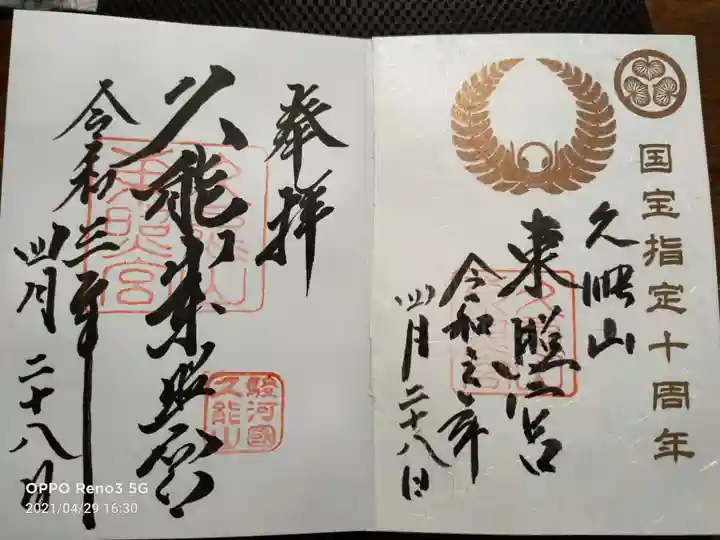 国宝指定十周年
久能山
東照宮
令和三年
四月二十八日
奉拝
久能山東照宮
駿河國
久能山
令和三年
四月二十八日
OPPO Reno3 5G
2021/04/29 16:30